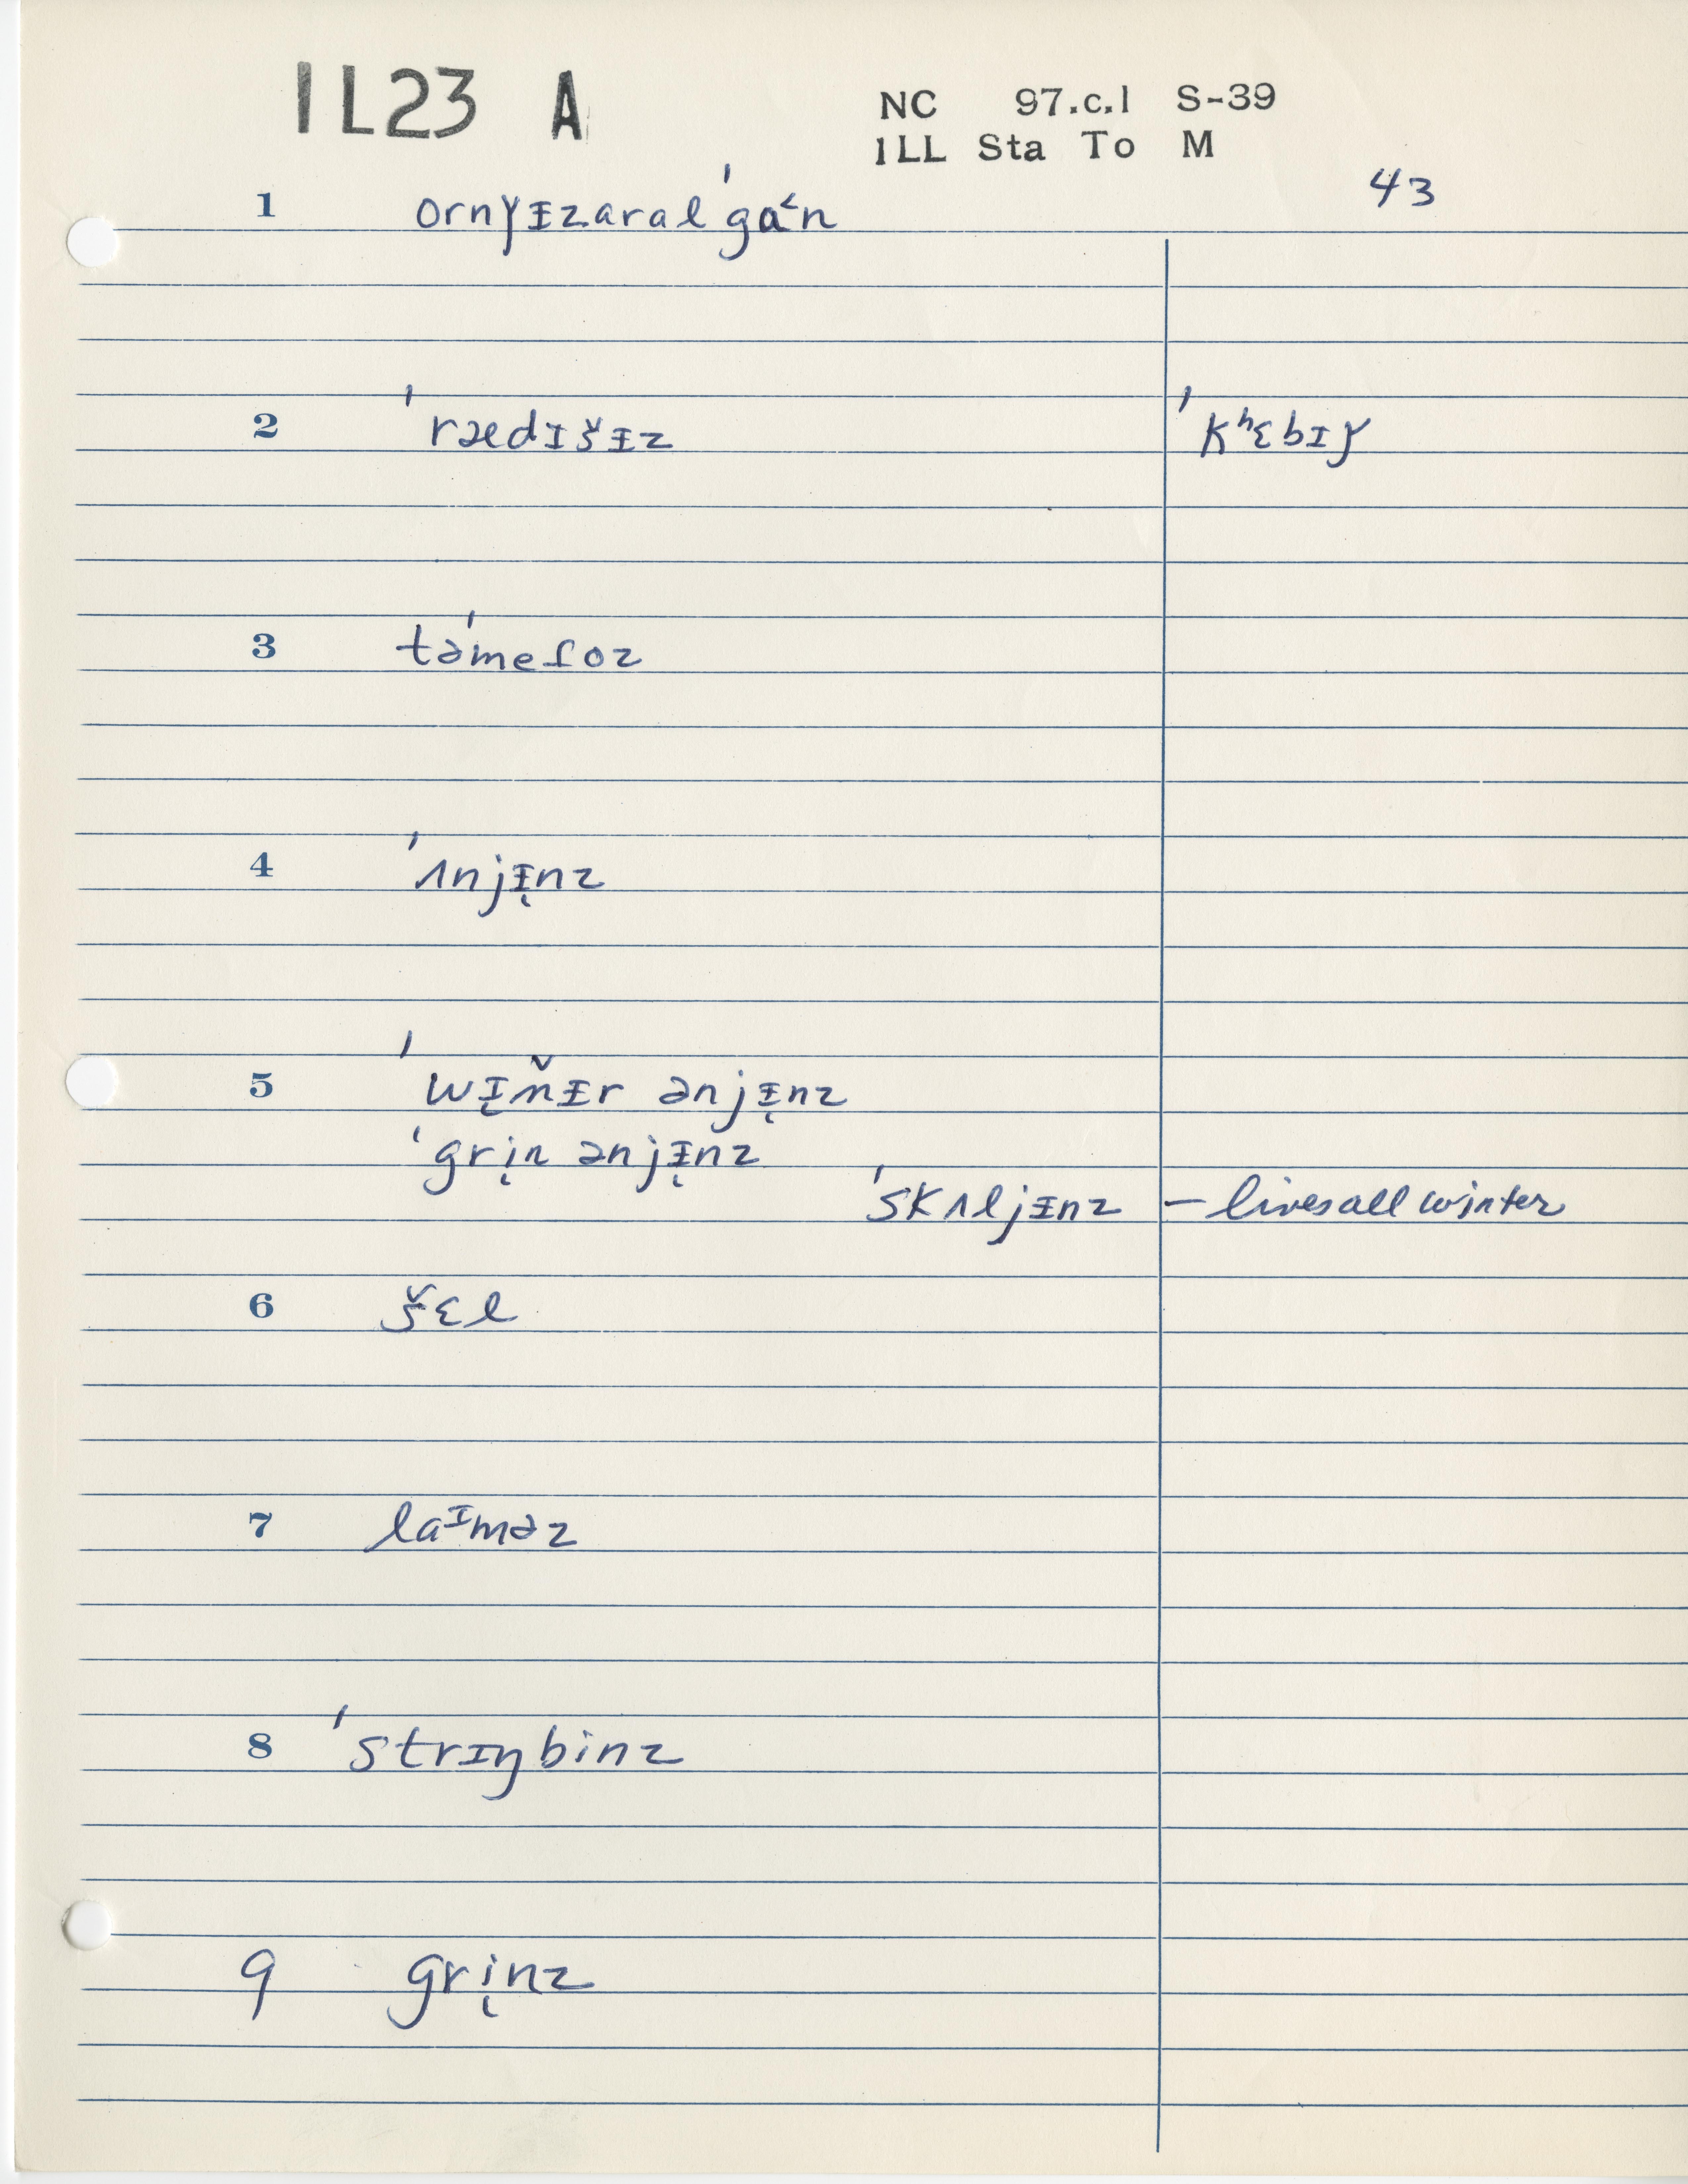 1L23 A
NC 97.c.1 S-39
ILL Sta To M
43
1 ornɣᵻzaral ˈga˂n
2 ˈrædɪšᵻz ˈkʰɛbɪɣ
3 təˈmeɾoz
4 ˈʌnjᵻ̨nz
5 ˈwᵻ̨ñ̌ᵻr ənjᵻ̨nz
ˈgrįn ənjᵻ̨nz
ˈskʌljᵻnz – lives all winter
6 šɛl
7 laᶦməz
8 ˈstrɪŋbinz
9 grįnz